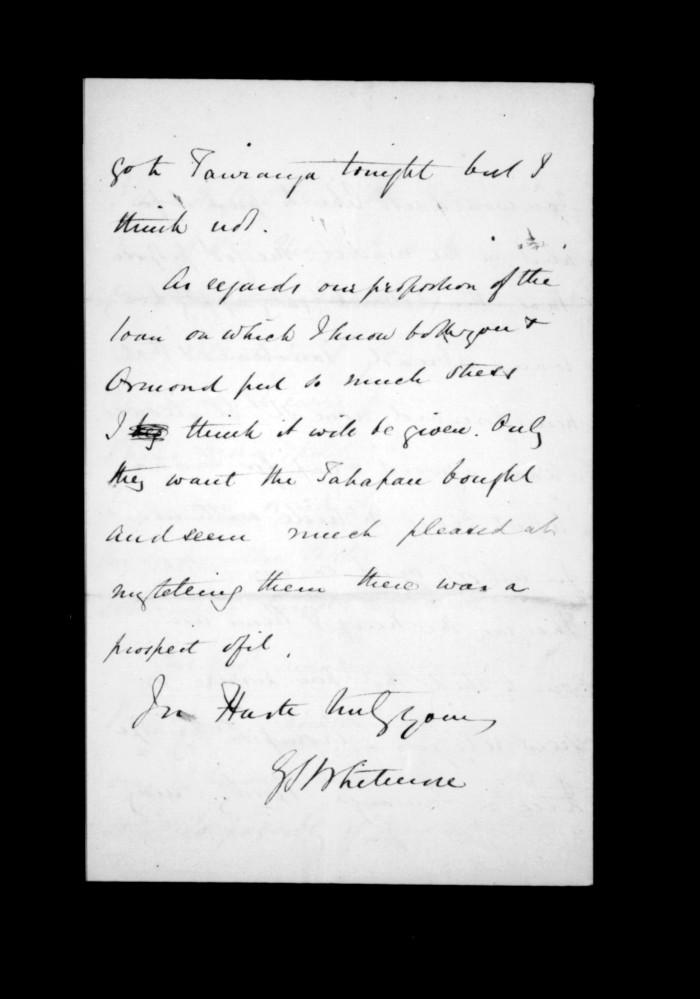 go to Tauranga tonight but I
think not.
As regards our proportion of the
loan on which I know both you &
Ormond put so much stress
I think it will be given. Only
they want the Tahapau bought
and seem much pleased at
my telling them there was a
prospect of it.
In Haste truly yours
GS Whitmore